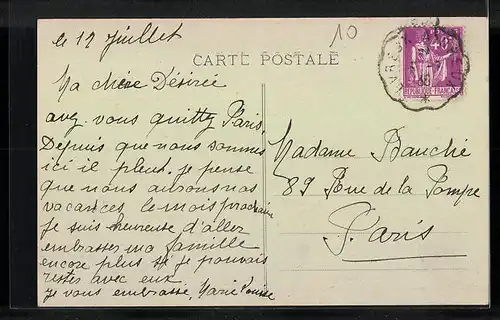 le 17 Juillet
10
CARTE POSTALE
Ma chère Désirée
avez vous quitté Paris,
Depuis que nous sommes
ici il pleut. je pense
que nous aurons nos
vacances le mois prochain
je suis heureuse d'aller
embrasser ma famille
encore plus si je pouvais
rester avec eux
je vous embrasse, Marie Louise
Madame Bauché
89 Rue de la Pompe
Paris
REPUBLIQUE FRANÇAISE